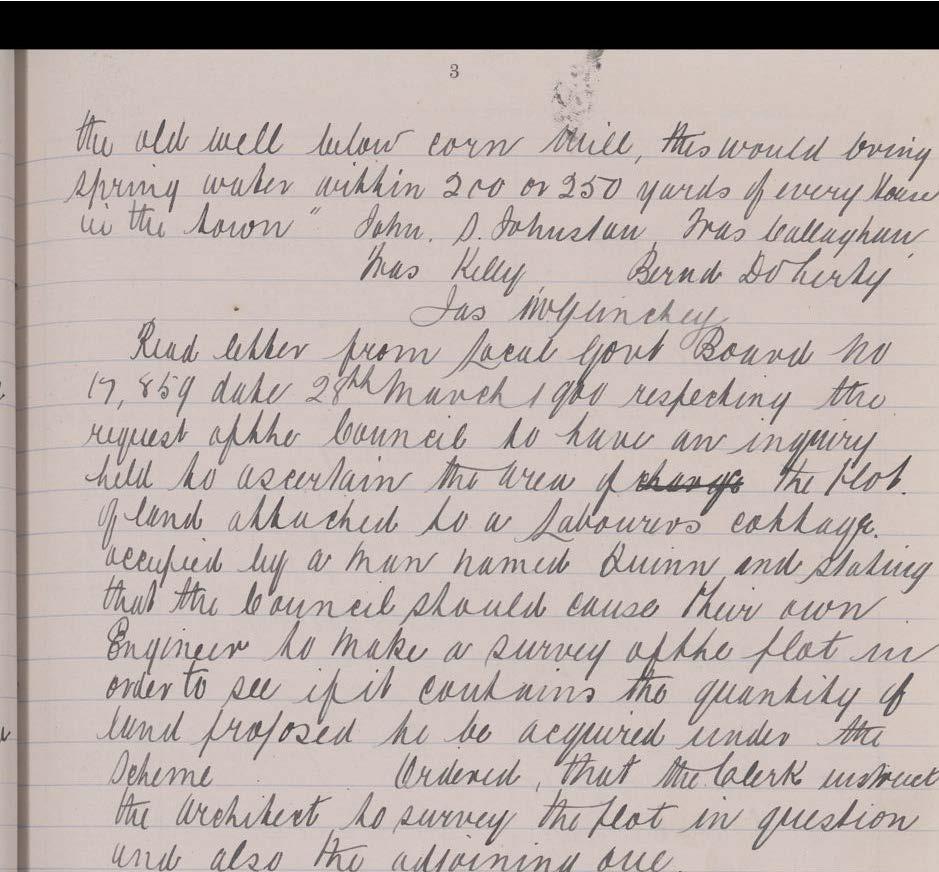 3
the old well below corn Mill, this would bring
spring water within 200 or 250 yards of every House
in the town" John. S. Johnston, Thos Callaghan,
Thos Kelly Bernd Doherty
Jas McGlinchey
Read letter from Local Govt Board No
17,859 date 28th March 1900 respecting the
request of the Council to have an inquiry
held to ascertain the area of change the plot.
of land attached to a Labourers cottage.
occupied by a man named Quinn and stating
that the Council should cause their own
Engineer to make a survey of the plot in
order to see if it contains the quantity of
land proposed to be acquired under the
Scheme Ordered, that the Clerk instruct
the architect to survey the plot in question
and also the adjoining one.